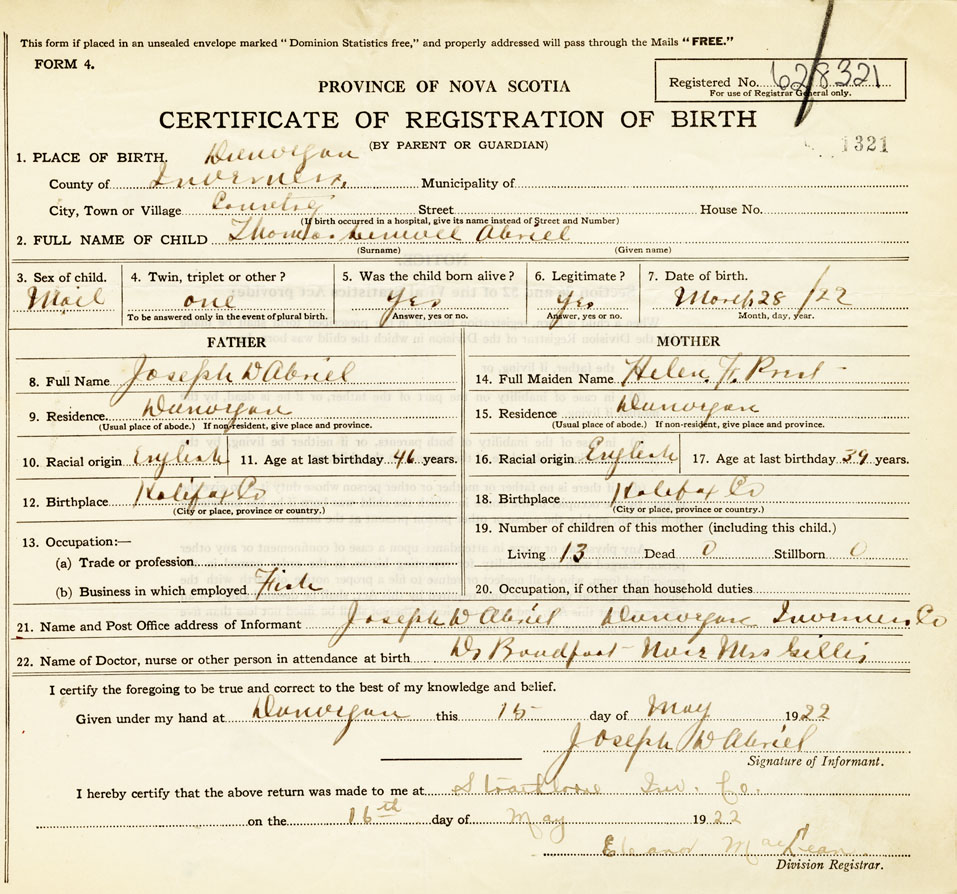 This form if placed in an unsealed envelope marked "Dominion Statistics free," and properly addressed will pass through the Mails "FREE."
FORM 4.
PROVINCE OF NOVA SCOTIA
Registered No. 628321
For use of Registrar General only.
CERTIFICATE OF REGISTRATION OF BIRTH
(BY PARENT OR GUARDIAN)
1321
1. PLACE OF BIRTH. Dunvegan
County of Inverness, Municipality of
City, Town or Village Country Street House No.
(If birth occurred in a hospital, give its name instead of Street and Number)
2. FULL NAME OF CHILD Thomas Abriel
(Surname) (Given name)
3. Sex of child. 4. Twin, triplet or other? 5. Was the child born alive? 6. Legitimate? 7. Date of birth.
Mail one Yes Yes March 28/22
To be answered only in the event of plural birth. Answer, yes or no. Answer, yes or no. Month, day, year.
FATHER MOTHER
8. Full Name Joseph D Abriel 14. Full Maiden Name Helen
9. Residence. Dunvegan 15. Residence Dunvegan
(Usual place of abode.) If non-resident, give place and province. (Usual place of abode.) If non-resident, give place and province.
10. Racial origin English 11. Age at last birthday 46 years. 16. Racial origin English 17. Age at last birthday 39 years.
12. Birthplace Halifax Co 18. Birthplace Halifax Co
(City or place, province or country.) (City or place, province or country.)
13. Occupation:— 19. Number of children of this mother (including this child.)
(a) Trade or profession Living 13 Dead 0 Stillborn 0
(b) Business in which employed Fish 20. Occupation, if other than household duties
21. Name and Post Office address of Informant Joseph D Abriel Dunvegan Inverness Co
22. Name of Doctor, nurse or other person in attendance at birth Dr Mrs Gillis
I certify the foregoing to be true and correct to the best of my knowledge and belief.
Given under my hand at Dunvegan this 15 day of May 1922
Joseph D Abriel
Signature of Informant.
I hereby certify that the above return was made to me at Strathlorne Inv. Co.
on the 16th day of May 1922
MacLean
Division Registrar.